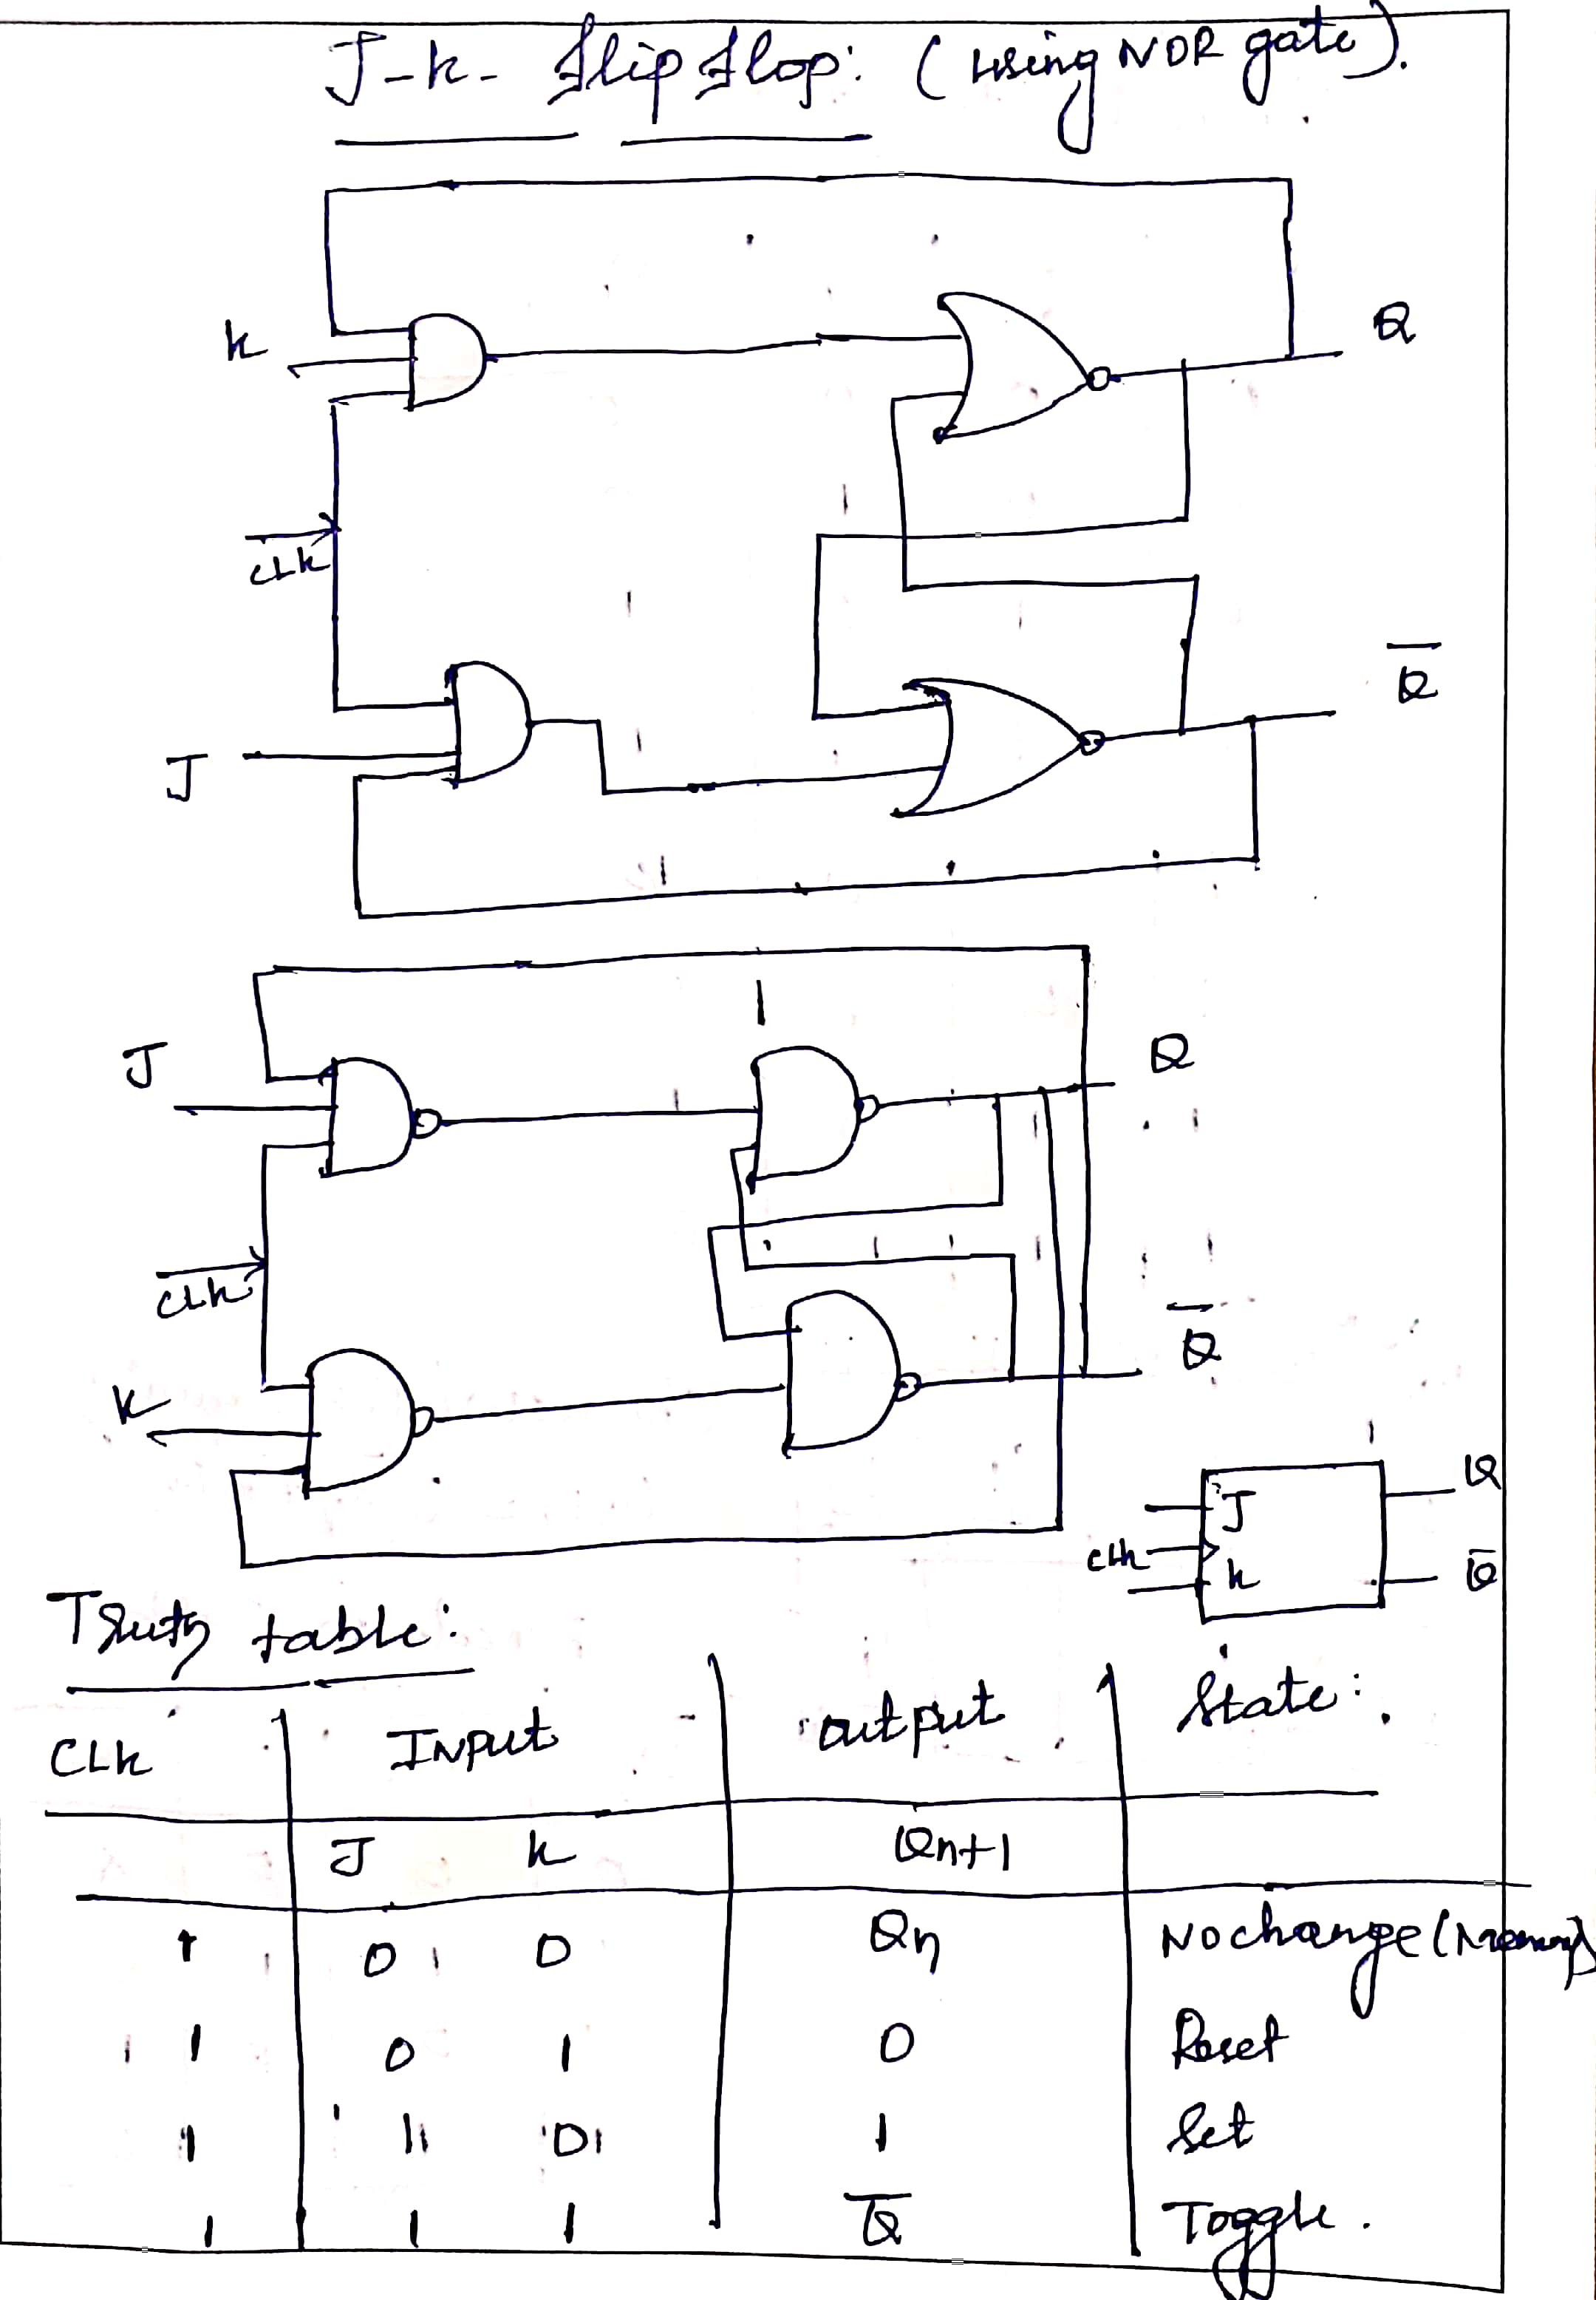 J-k- flip flop: (using NOR gate).
k
Q
CLK
J
Q̅
J
Q
CLK
k
Q̅
J
Q
CLK
k
Q̅
Truth table:
CLK INPUT output State:
J k Qn+1
1 0 0 Qn No change (Memory)
1 0 1 0 Reset
1 1 0 1 Set
1 1 1 Q̅ Toggle.